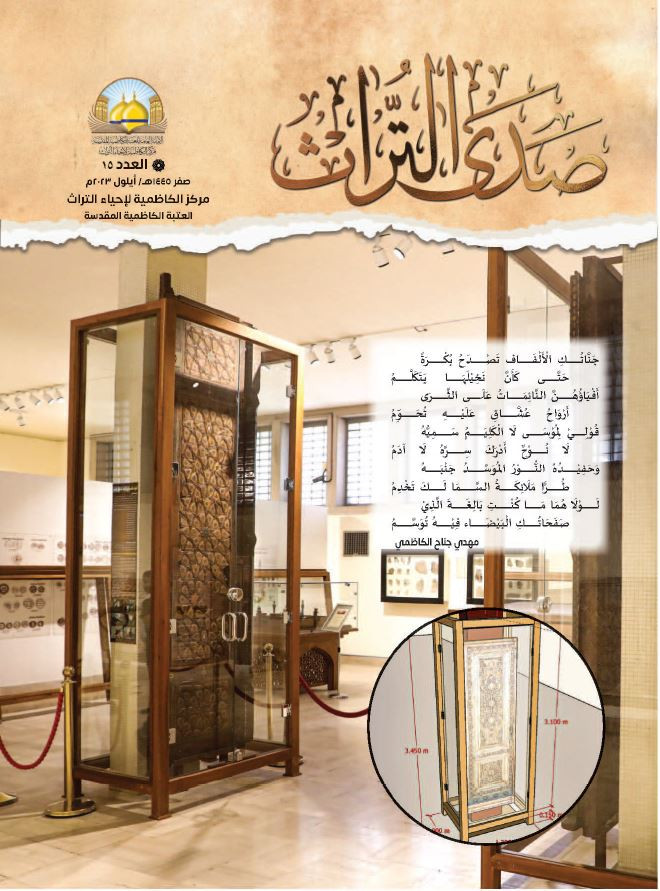 صَدَى التُّرَاث
العدد ١٥
صفر ١٤٤٥هـ/ أيلول ٢٠٢٣م
مركز الكاظمية لإحياء التراث
العتبة الكاظمية المقدسة
جَنَّاتُكِ الْأَلْفَافُ تَصْدَحُ بُكْرَةً
حَتَّى كَأَنَّ نَخِيْلَهَا يَتَكَلَّمُ
أَفْيَاؤُهُنَّ النَّائِمَاتُ عَلَى الثَّرَى
أَرْوَاحُ عُشَّاقٍ عَلَيْهِ تُحَوِّمُ
قُوْلِيْ لِمُوْسَى لَا الْكَلِيْمُ سَمِيُّهُ
لَا نُوْحٌ أَدْرَكَ سِرَّهُ لَا آدَمُ
وَحَفِيْدُهُ النُّوْرُ الْمُوَسَّدُ جَنْبَهُ
طُرًّا مَلَائِكَةُ السَّمَا لَكَ تَخْدِمُ
لَوْلَا هُمَا مَا كُنْتِ بَالِغَةَ الَّذِيْ
صَفَحَاتُكِ الْبَيْضَاء فِيْهِ تُوَسَّمُ
مهدي جناح الكاظمي
3.450 m
3.100 m